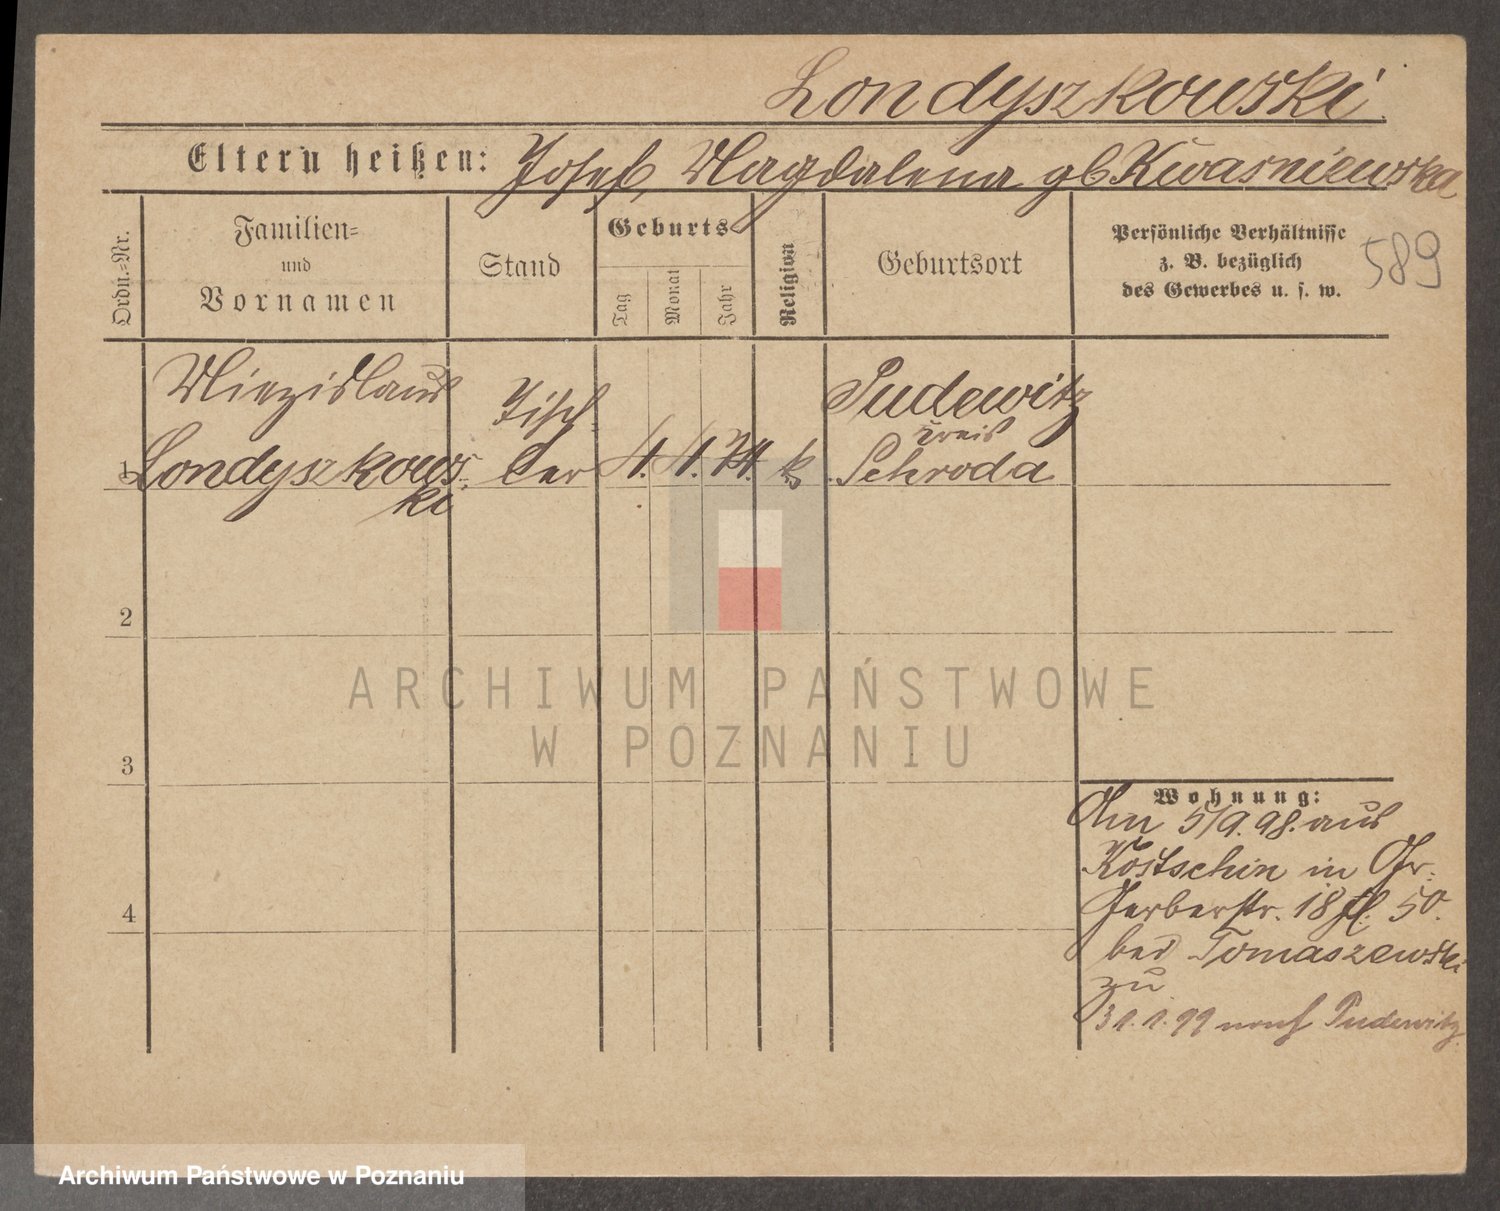 Londyszkowski
Eltern heißen: Josef, Magdalena gb Kwasniewska
Ordn.-Nr.
Familien-
und
Vornamen
Stand
Geburts
Tag
Monat
Jahr
Religion
Geburtsort
Persönliche Verhältnisse
z. B. bezüglich
des Gewerbes u. s. w.
589
1
Miezislaus
Londyszkows-
ki
Tisch-
ler
4. 4. 74. k
Pudewitz
Kreis
Schroda
2
3
4
Wohnung:
Am 5/9. 98. aus
Kostschin in Gr.
Gerberstr. 18 50.
bei Tomaszewski
zu
31.1.99 nach Pudewitz
ARCHIWUM PAŃSTWOWE
W POZNANIU
Archiwum Państwowe w Poznaniu